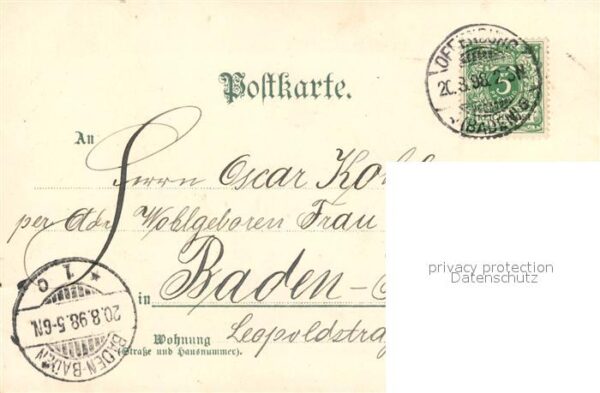 OFFENBURG
20.8.98. 2-3N.
(BADEN)
5
Postkarte.
An
Herrn Oscar Ko
per Adr Wohlgeboren Frau
in Baden-
Leopoldstra
Wohnung
(Straße und Hausnummer).
BADEN-BADEN
20.8.98.5-6N.
* 1 c
privacy protection
Datenschutz